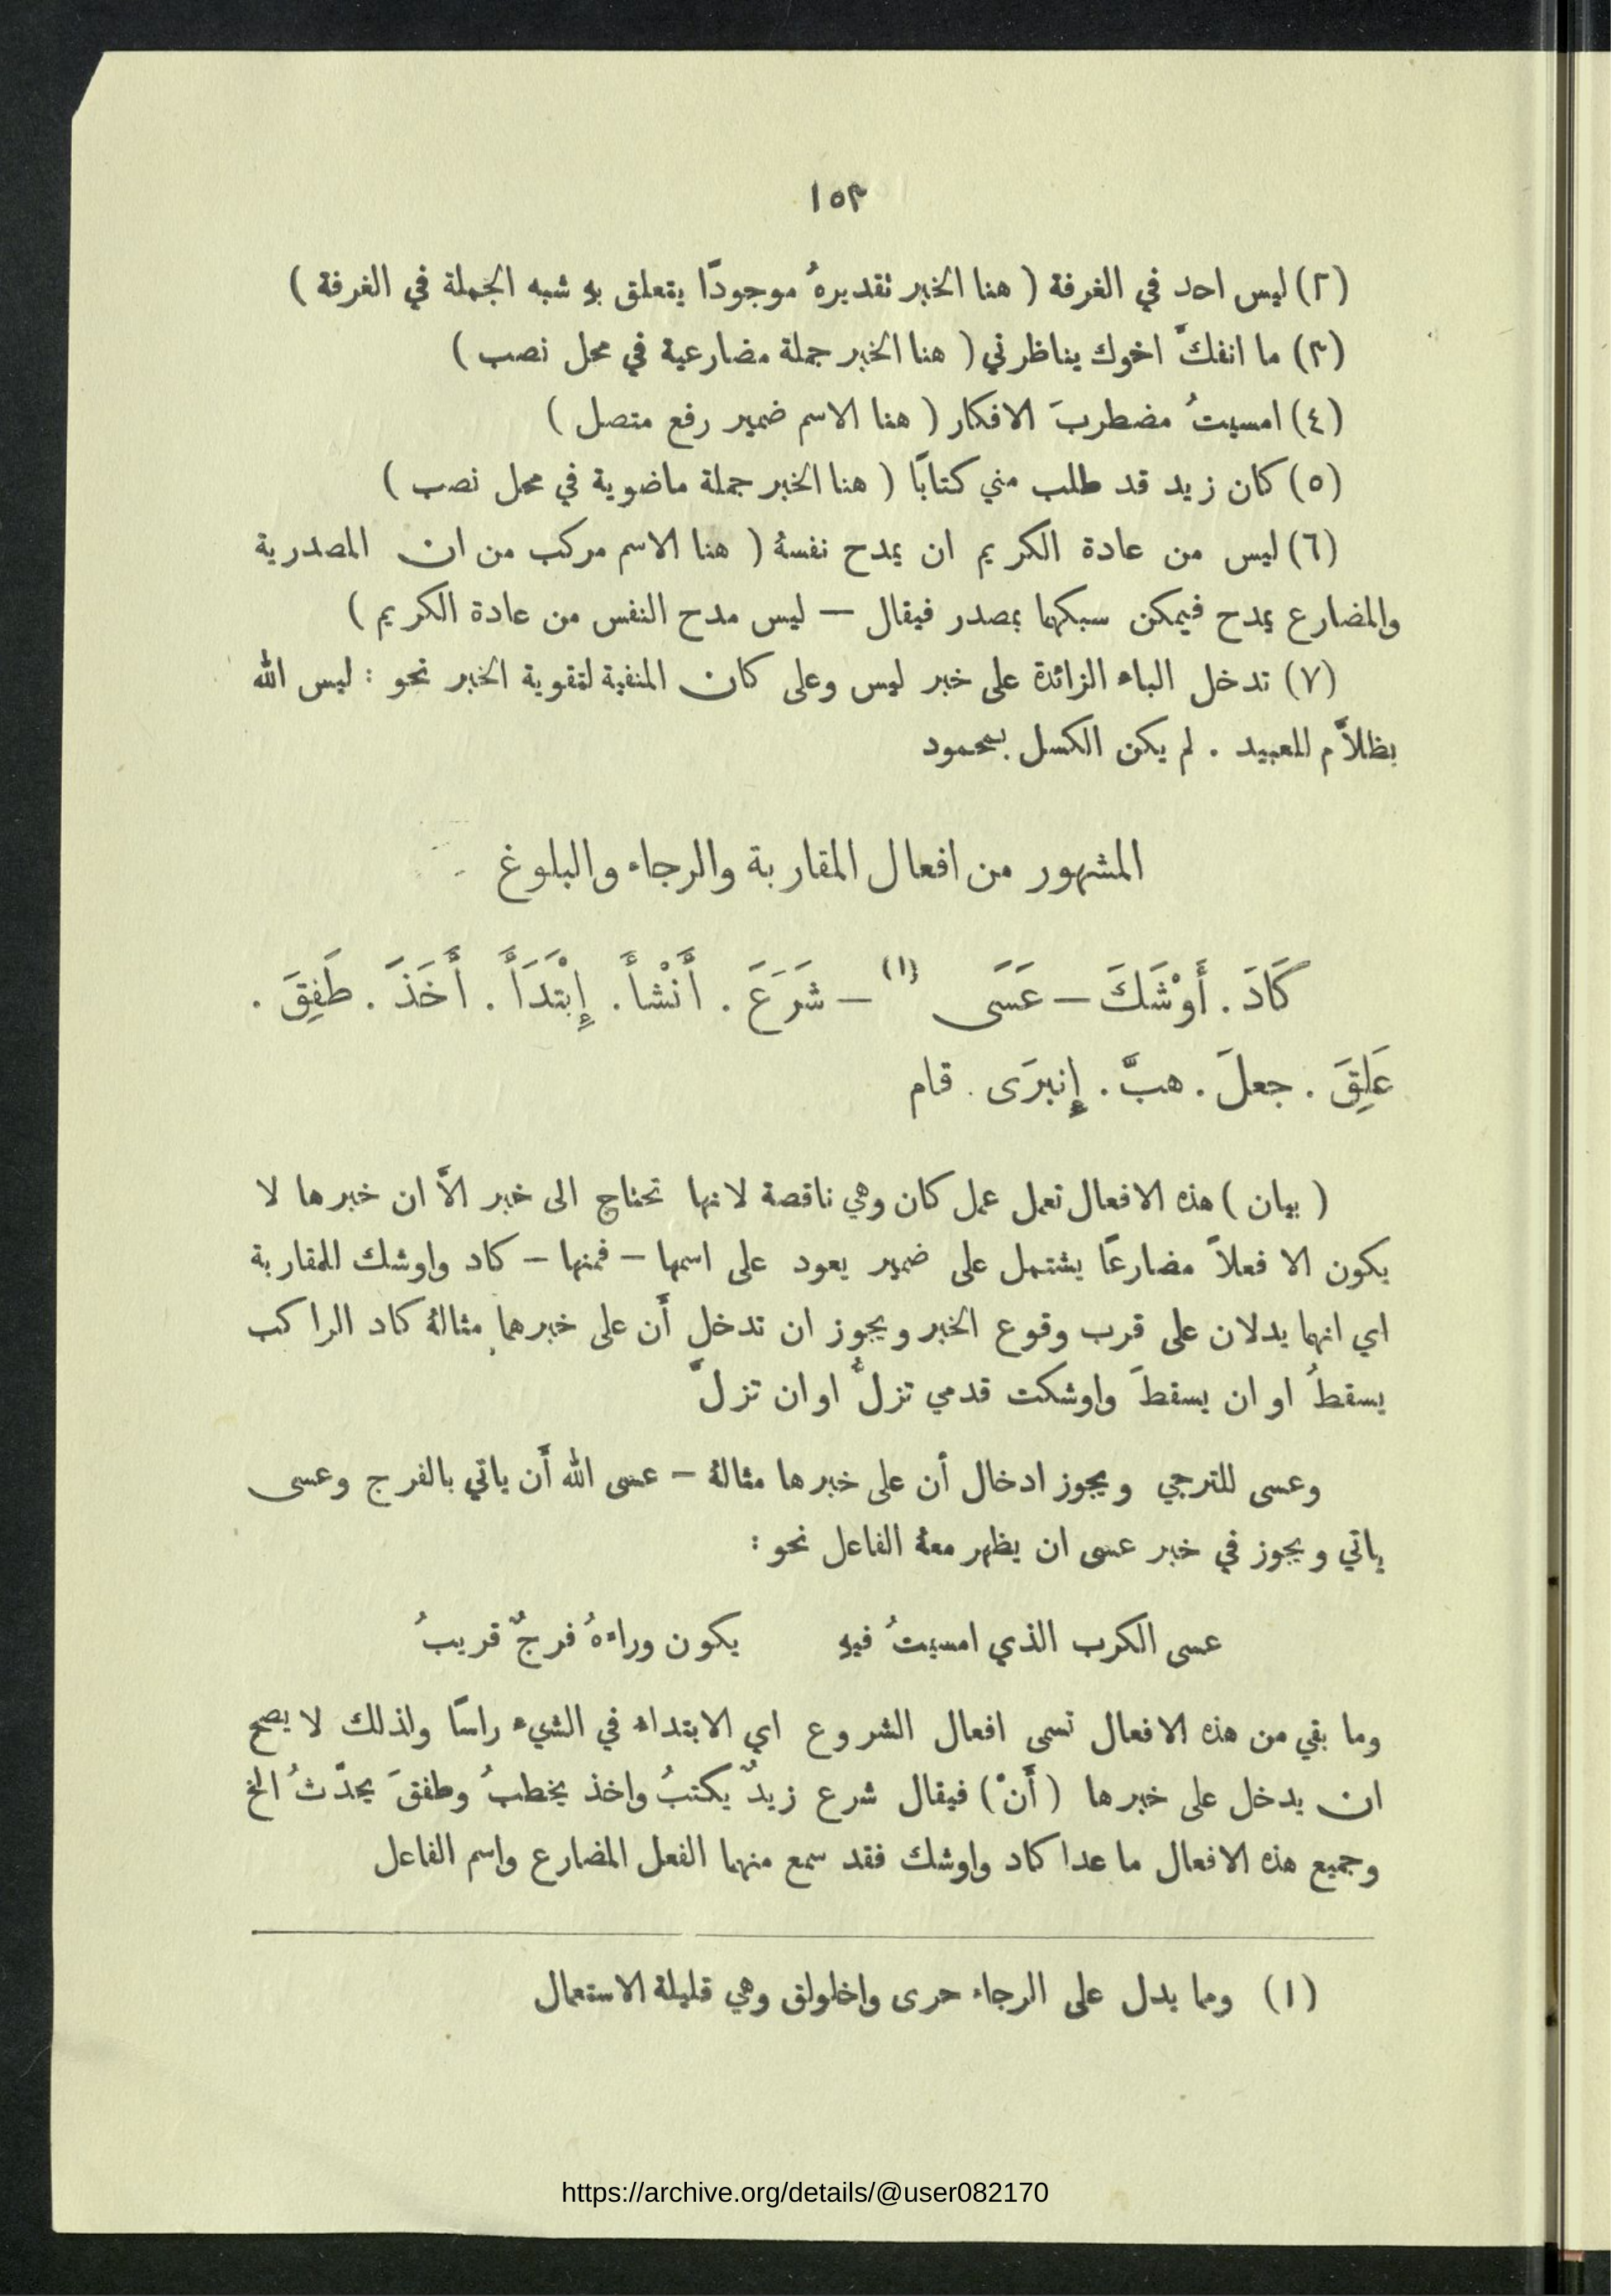 ١٥٣
(٢) ليس احد في الغرفة ( هنا الخبر تقديرهُ موجودًا يتعلق به شبه الجملة في الغرفة )
(٣) ما انفكَّ اخوك يناظرني ( هنا الخبر جملة مضارعية في محل نصب )
(٤) امسيتُ مضطربَ الافكار ( هنا الاسم ضمير رفع متصل )
(٥) كان زيد قد طلب مني كتابًا ( هنا الخبر جملة ماضوية في محل نصب )
(٦) ليس من عادة الكريم ان يمدح نفسهُ ( هنا الاسم مركب من ان المصدرية
والمضارع يمدح فيمكن سبكهما بمصدر فيقال — ليس مدح النفس من عادة الكريم )
(٧) تدخل الباء الزائدة على خبر ليس وعلى كان المنفية لتقوية الخبر نحو : ليس الله
بظلاَّم للعبيد . لم يكن الكسل بمحمود
المشهور من افعال المقاربة والرجاء والبلوغ
كَادَ . أَوْشَكَ — عَسَى (١) — شَرَعَ . أَنْشأَ . إِبْتَدَأَ . أَخَذَ . طَفِقَ .
عَلِقَ . جعلَ . هبَّ . إِنبرَى . قام
( بيان ) هذه الافعال تعمل عمل كان وهي ناقصة لانها تحتاج الى خبر الاَّ ان خبرها لا
يكون الا فعلاً مضارعًا يشتمل على ضمير يعود على اسمها — فمنها — كاد واوشك للمقاربة
اي انهما يدلان على قرب وقوع الخبر ويجوز ان تدخل أَن على خبرهما مثالهُ كاد الراكب
يسقطُ او ان يسقطَ واوشكت قدمي تزلُّ او ان تزلَّ
وعسى للترجي ويجوز ادخال أن على خبرها مثالهُ — عسى الله أَن ياتي بالفرج وعسى
ياتي ويجوز في خبر عسى ان يظهر معهُ الفاعل نحو :
عسى الكرب الذي امسيتُ فيه يكون وراءهُ فرجٌ قريبُ
وما بقي من هذه الافعال تسمى افعال الشروع اي الابتداء في الشيء راسًا ولذلك لا يصح
ان يدخل على خبرها ( أَنْ ) فيقال شرع زيدٌ يكتبُ واخذ يخطبُ وطفقَ يحدّثُ الخ
وجميع هذه الافعال ما عدا كاد واوشك فقد سمع منهما الفعل المضارع واسم الفاعل
(١) ومما يدل على الرجاء حرى واخلولق وهي قليلة الاستعمال
https://archive.org/details/@user082170